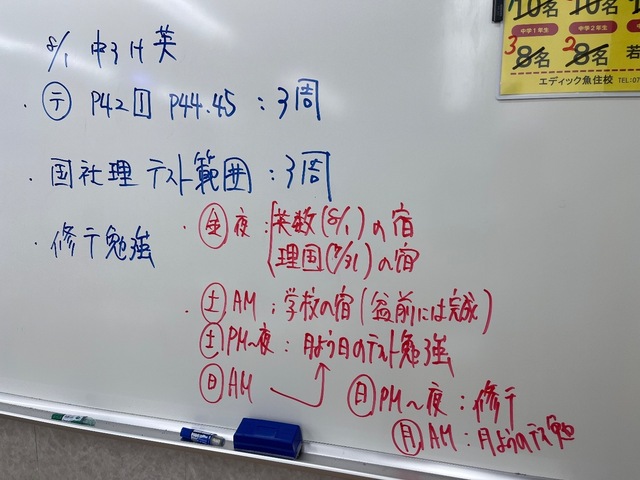 8/1 中3 H 英
・㋢ P42 1 P44.45：3周
・国社理 テスト範囲：3周
・修テ勉強
・㊎夜：英数(8/1)の宿
理国(7/31)の宿
㊏AM：学校の宿(盆前には完成)
㊏PM〜夜：月よう日のテスト勉強
㊐AM
㊐PM〜夜：修テ
㊊AM：月ようのテス勉
10名 10名
中学1年生 中学2年生
3 8名 2 8名 若
エディック魚住校 TEL:07